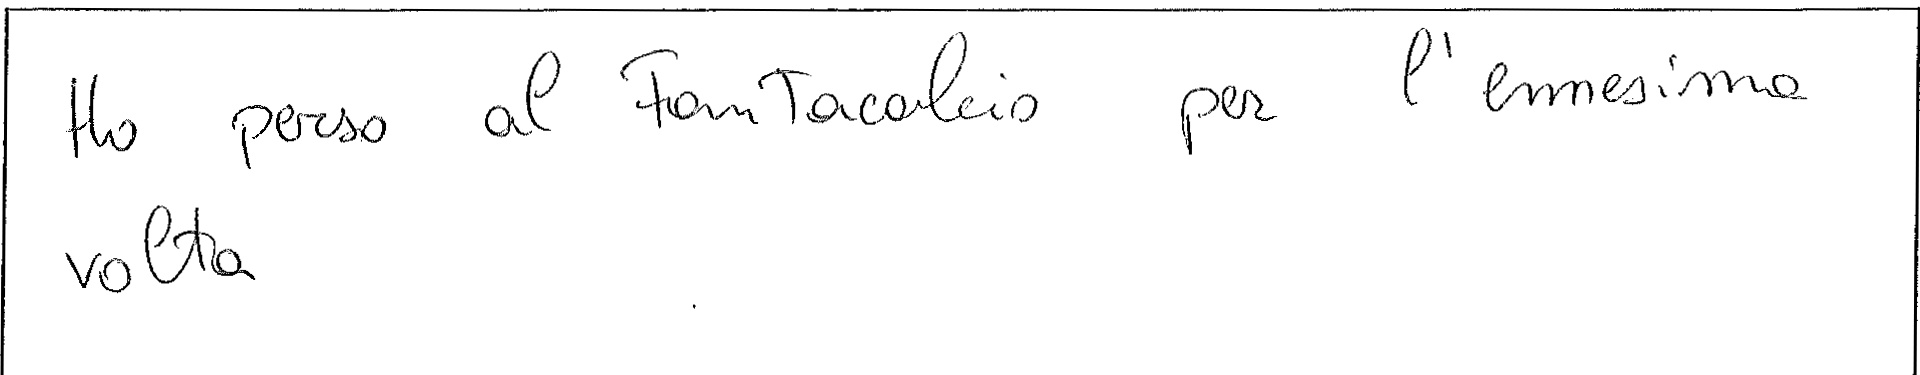 Ho perso al Fantacalcio per l'ennesima
volta